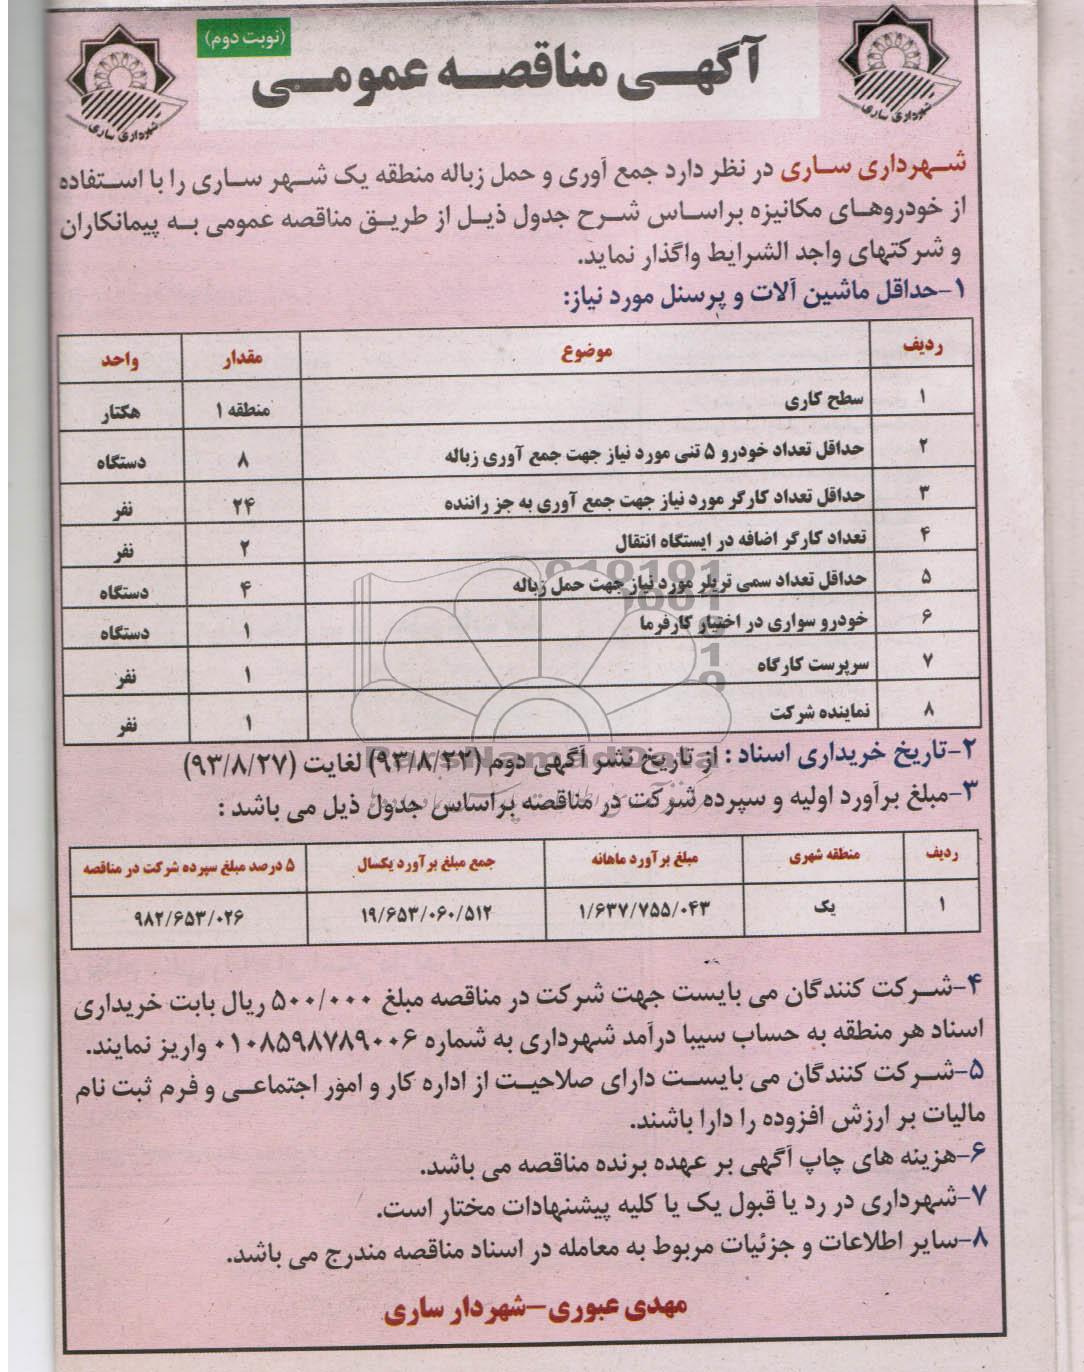 (نوبت دوم)
آگهی مناقصه عمومی
شهرداری ساری
شهرداری ساری
شهرداری ساری در نظر دارد جمع آوری و حمل زباله منطقه یک شهر ساری را با استفاده
از خودروهای مکانیزه براساس شرح جدول ذیل از طریق مناقصه عمومی به پیمانکاران
و شرکتهای واجد الشرایط واگذار نماید.
۱-حداقل ماشین آلات و پرسنل مورد نیاز:
ردیف موضوع مقدار واحد
۱ سطح کاری منطقه ۱ هکتار
۲ حداقل تعداد خودرو ۵ تنی مورد نیاز جهت جمع آوری زباله ۸ دستگاه
۳ حداقل تعداد کارگر مورد نیاز جهت جمع آوری به جز راننده ۲۴ نفر
۴ تعداد کارگر اضافه در ایستگاه انتقال ۲ نفر
۵ حداقل تعداد سمی تریلر مورد نیاز جهت حمل زباله ۴ دستگاه
۶ خودرو سواری در اختیار کارفرما ۱ دستگاه
۷ سرپرست کارگاه ۱ نفر
۸ نماینده شرکت ۱ نفر
ParsNamadData
۲-تاریخ خریداری اسناد : از تاریخ نشر آگهی دوم (۹۳/۸/۲۲) لغایت (۹۳/۸/۲۷)
۳-مبلغ برآورد اولیه و سپرده شرکت در مناقصه براساس جدول ذیل می باشد :
ردیف منطقه شهری مبلغ برآورد ماهانه جمع مبلغ برآورد یکسال ۵ درصد مبلغ سپرده شرکت در مناقصه
۱ یک ۱/۶۳۷/۷۵۵/۰۴۳ ۱۹/۶۵۳/۰۶۰/۵۱۲ ۹۸۲/۶۵۳/۰۲۶
۴-شرکت کنندگان می بایست جهت شرکت در مناقصه مبلغ ۵۰۰/۰۰۰ ریال بابت خریداری
اسناد هر منطقه به حساب سیبا درآمد شهرداری به شماره ۰۱۰۸۵۹۸۷۸۹۰۰۶ واریز نمایند.
۵-شرکت کنندگان می بایست دارای صلاحیت از اداره کار و امور اجتماعی و فرم ثبت نام
مالیات بر ارزش افزوده را دارا باشند.
۶-هزینه های چاپ آگهی بر عهده برنده مناقصه می باشد.
۷-شهرداری در رد یا قبول یک یا کلیه پیشنهادات مختار است.
۸-سایر اطلاعات و جزئیات مربوط به معامله در اسناد مناقصه مندرج می باشد.
مهدی عبوری-شهردار ساری